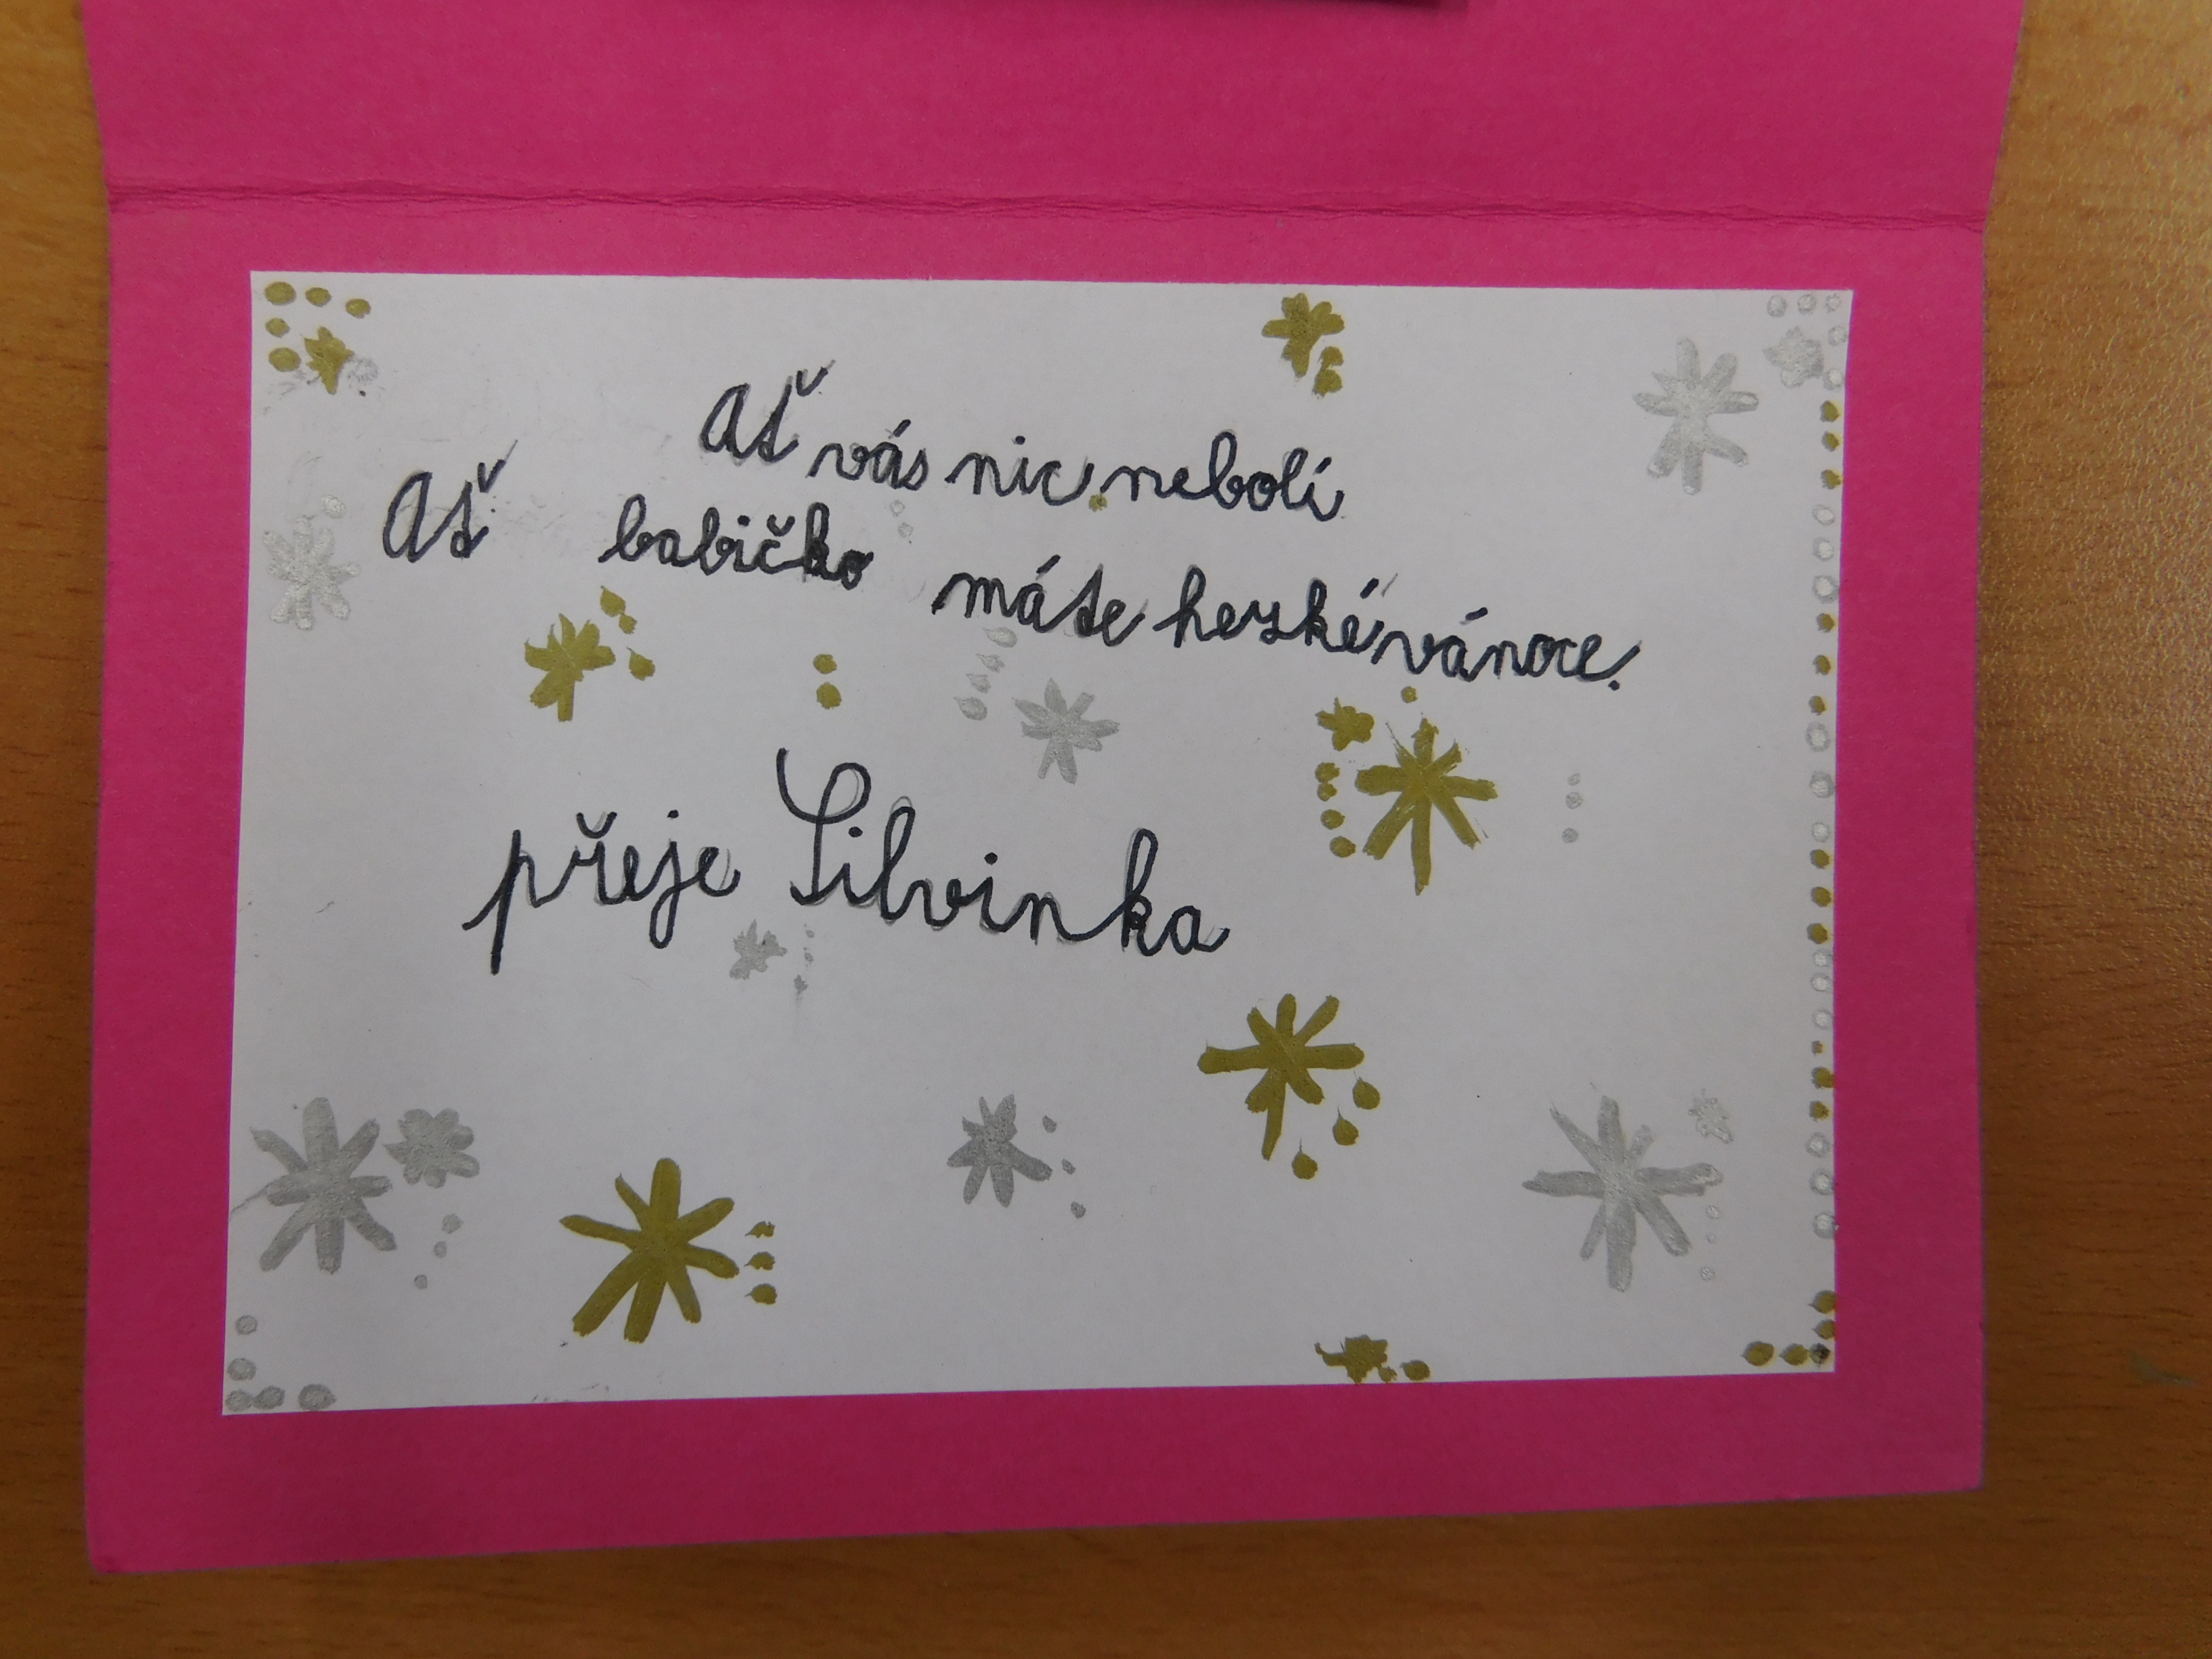 Ať vás nic nebolí
Ať babičko máte hezké vánoce.
přeje Silvinka